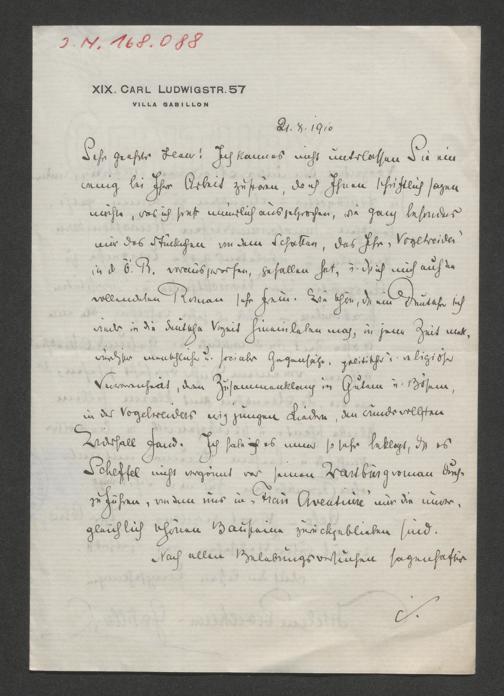 J. N. 168.088
XIX. CARL LUDWIGSTR. 57
VILLA GABILLON
21. X. 1910
Sehr geehrter Herr! Ich kann es nicht unterlassen Sie ein
wenig bei Ihrer Arbeit zu stören, da ich Ihnen schriftlich sagen
möchte, was ich mündlich ausgesprochen, wie ganz besonders
mir das Stückchen von dem Schatten, das Ihr "Vogelweider"
in d. Ö. R. vorausgeworfen, gefallen hat, u. daß ich mich auf den
vollendeten Roman sehr freue. Wie schön, da ein Deutscher sich
wieder in die deutsche Vorzeit hineinleben mag, in jene Zeit merk-
würdiger menschlicher u. sozialer Gegensätze, politischer u. religiöser
Verworrenheit, deren Zusammenklang in Gutem u. Bösem,
in der Vogelweiders ewig jungen Liedern, den wundervollsten
Widerhall fand. Ich habe es immer so sehr beklagt, daß es
Scheffel nicht vergönnt war seinen Wartburgroman durch-
zuführen, von dem uns in "Frau Aventiure" nur die unver-
gleichlich schönen Bausteine zurückgeblieben sind.
Nach allen Belebungsversuchen sagenhafter